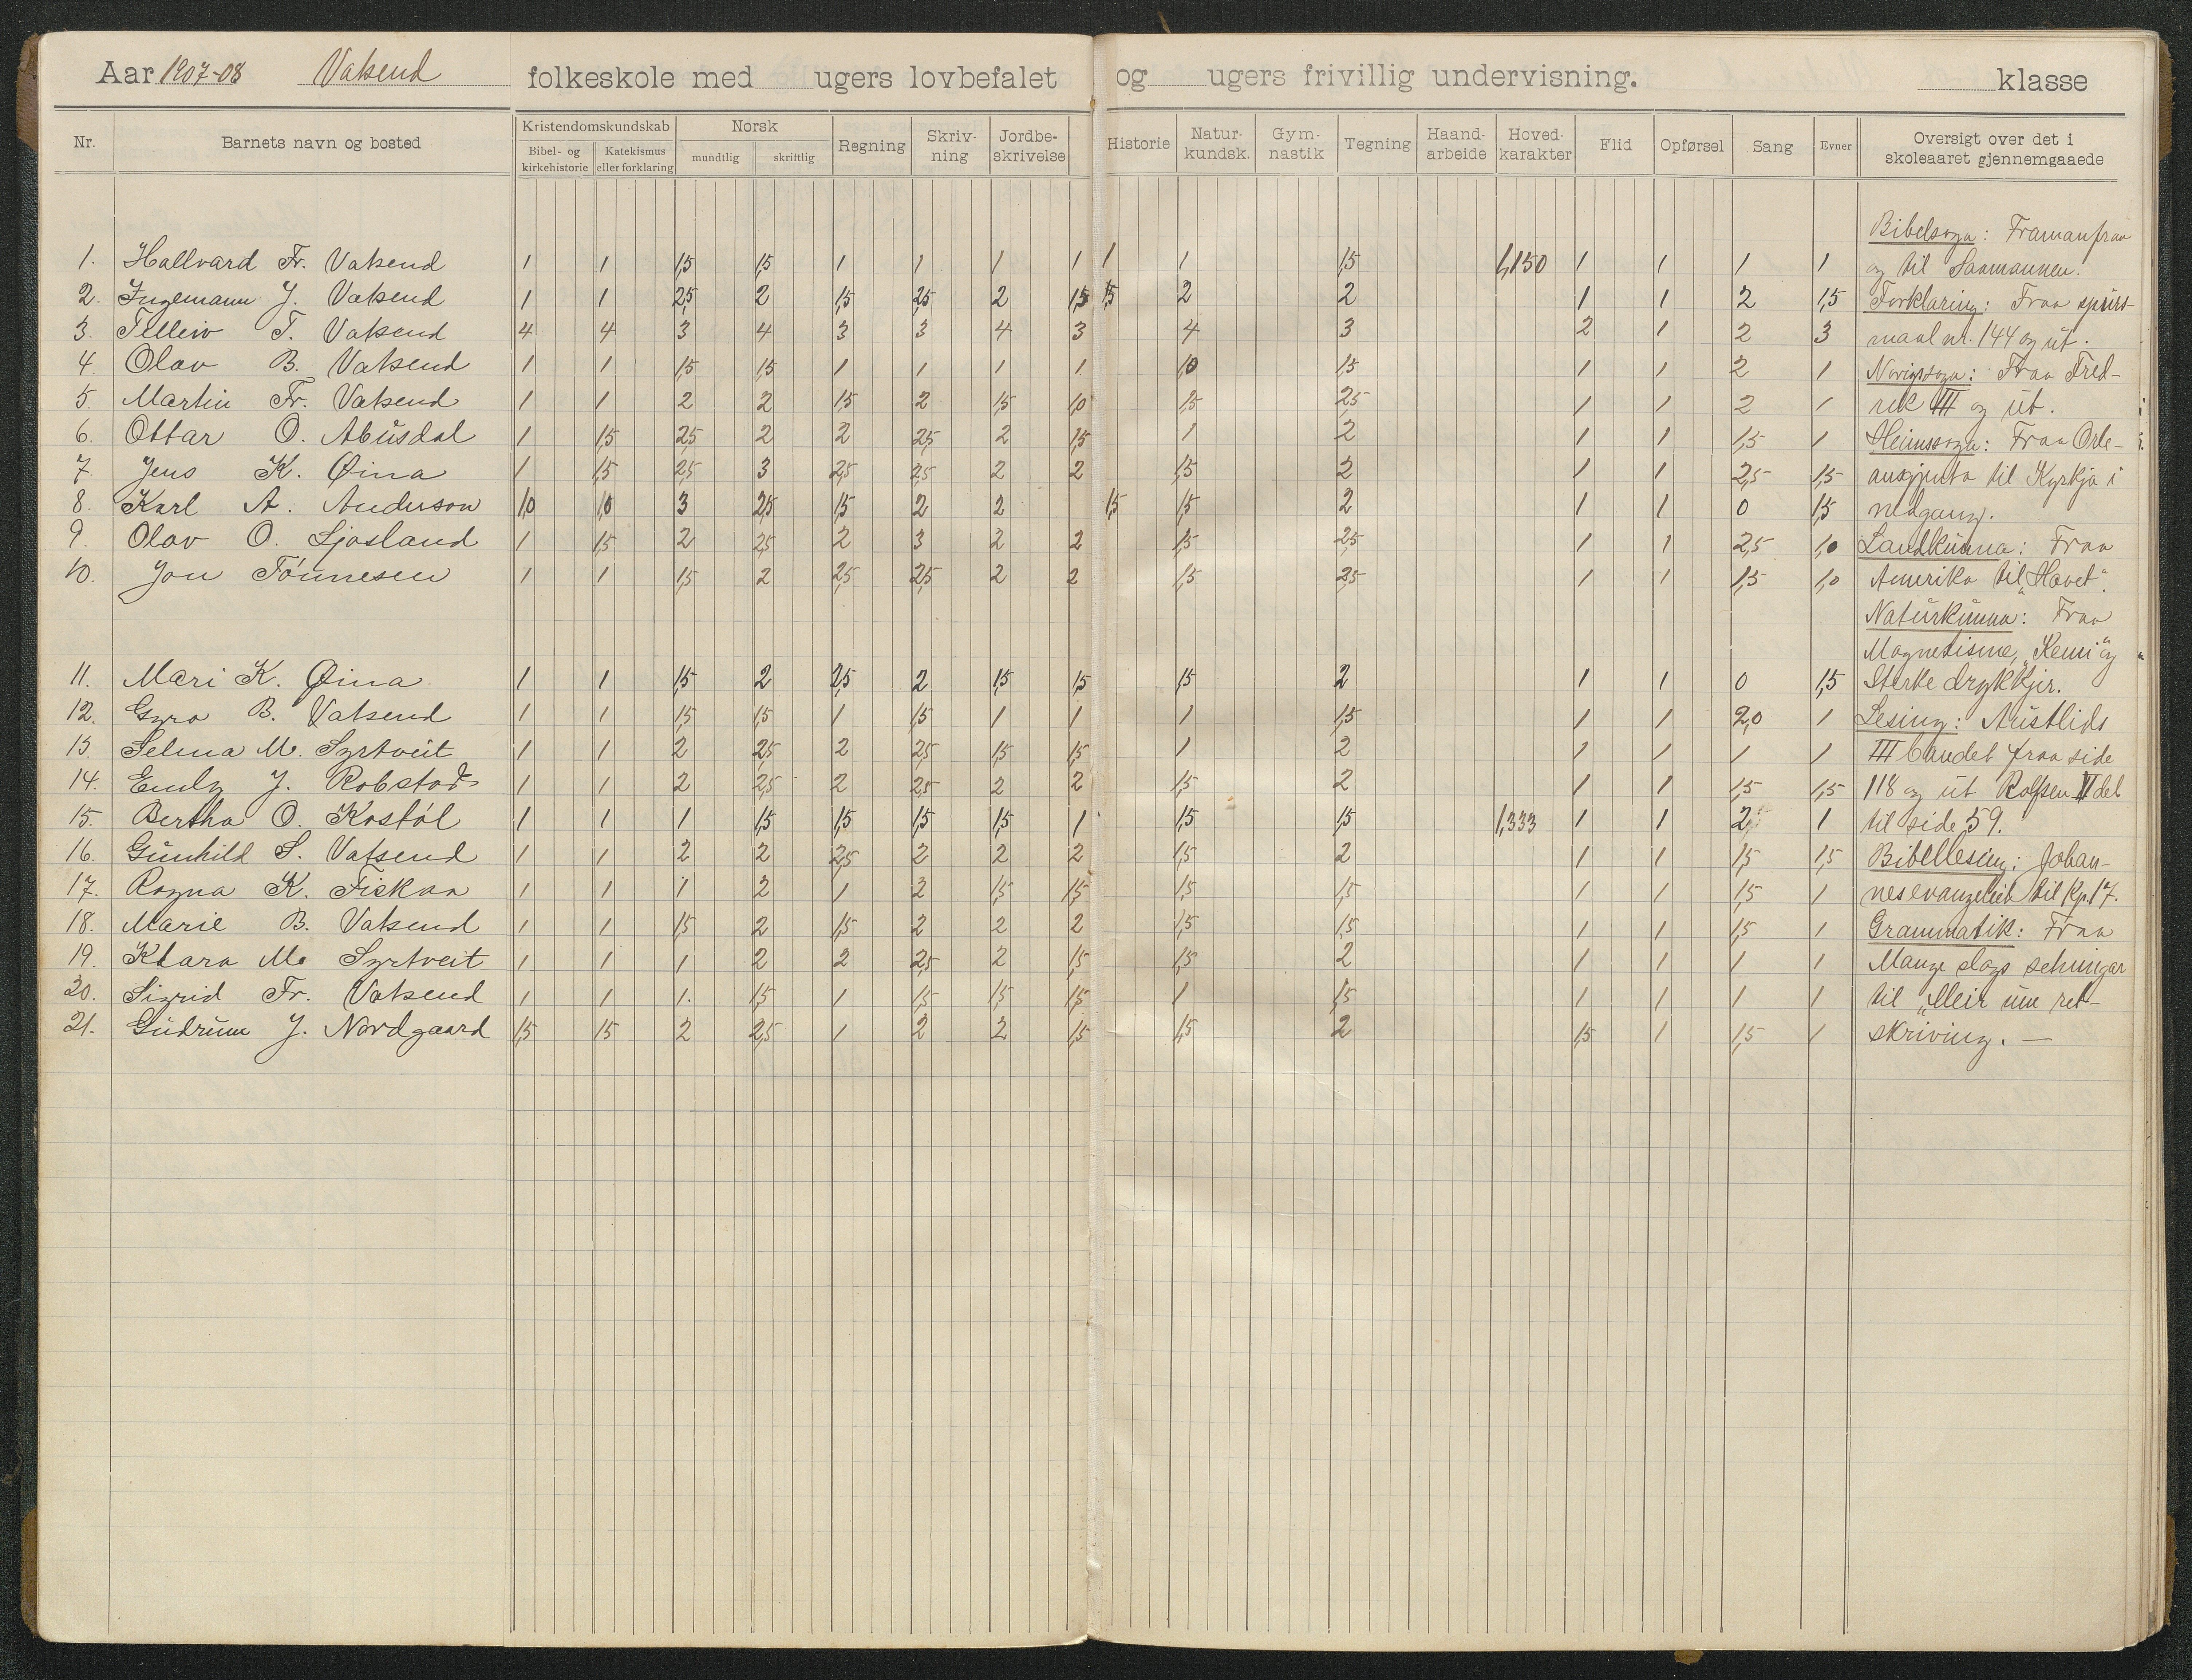 Aar 1907-08 Vatsend folkeskole med ugers lovbefalet og ugers frivillig undervisning. klasse
Nr. Barnets navn og bosted Kristendomskundskab Bibel- og kirkehistorie Katekismus eller forklaring Norsk mundtlig skriftlig Regning Skriv-ning Jordbe-skrivelse Historie Natur-kundsk. Gym-nastik Tegning Haand-arbeide Hoved-karakter Flid Opførsel Sang Evner Oversigt over det i skoleaaret gjennemgaaede
Bibelsoga: Framanfraa
1. Hallvard Fr. Vatsend 1 1 1,5 1,5 1 1 1 1 1 1 1,5 1,150 1 1 1 1 og til Saamannen.
2. Ingemann J. Vatsend 1 1 2,5 2 1,5 2,5 2 1,5 1,5 2 2 1 1 2 1,5 Forklaring: Fraa spurs-
3. Telleiv T. Vatsend 4 4 3 4 3 3 4 3 4 3 2 1 2 3 maal nr. 144 og ut.
4. Olav B. Vatsend 1 1 1,5 1,5 1 1 1 1 1,0 1,5 1 1 2 1 Norigssoga: Fraa Fred-
5. Martin Fr. Vatsend 1 1 2 2 1,5 2 1,5 1,0 1,5 2,5 1 1 2 1 rik III og ut.
6. Ottar O. Abusdal 1 1,5 2,5 2 2 2,5 2 1,5 1 2 1 1 1,5 1 Heimssoga: Fraa Orle-
7. Jens K. Øina 1 1,5 2,5 3 2,5 2,5 2 2 1,5 2 1 1 2,5 1,5 ansgjenta til Kyrkja i
8. Karl A. Anderson 1,0 1,0 3 2,5 1,5 2 2 1,5 1,5 2 1 1 0 1,5 nedgang.
9. Olav O. Ljosland 1 1,5 2 2,5 2 3 2 2 1,5 2,5 1 1 2,5 1,0 Landkunna: Fraa
10. Jon Tönnesen 1 1 1,5 2 2,5 2,5 2 2 1,5 2,5 1 1 1,5 1,0 Amerika til „Havet“.
Naturkunna: Fraa
Magnetisme, „Kemi“ og
11. Mari K. Øina 1 1 1,5 2 2,5 2 1,5 1,5 1,5 2 1 1 0 1,5 Sterke drykkjer.
12. Gyro B. Vatsend 1 1 1,5 1,5 1 1,5 1 1 1 1,5 1 1 2,0 1 Lesing: Austlids
13. Selma M. Syrtveit 1 1 2 2,5 2 2,5 1,5 1,5 1 2 1 1 1 1 III bandet fraa side
14. Emly J. Robstad 1 1 2 2,5 2 2,5 2 2 1,5 2 1 1 1,5 1,5 118 og ut Rolfsen II del
15. Bertha O. Kostøl 1 1 1 1,5 1,5 1,5 1,5 1 1,5 1,5 1,333 1 1 2 1 til side 59.
16. Gunhild S. Vatsend 1 1 2 2 2,5 2 2 2 1,5 2 1 1 1,5 1,5 Bibellesing: Johan-
17. Ragna K. Fiskaa 1 1 1 2 1 2 1,5 1,5 1,5 1,5 1 1 1,5 1 nesevangeliet til Kp. 17.
18. Marie B. Vatsend 1 1 1,5 2 1,5 2 2 2 1,5 1,5 1 1 1,5 1 Grammatik: Fraa
19. Klara M. Syrtveit 1 1 1 2 2 2,5 2 1,5 1,5 2 1 1 1 1 Mange slags setningar
20. Sigrid Fr. Vatsend 1 1 1. 1,5 1 1,5 1,5 1,5 1 1,5 1 1 1 1 til „Meir um ret-
21. Gudrun J. Nordgaard 1,5 1,5 2 2,5 1 2 2 1,5 1,5 2 1,5 1 1,5 1 skriving. —